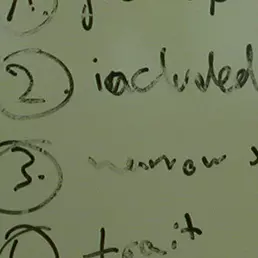 2. included
3. narrow
trait